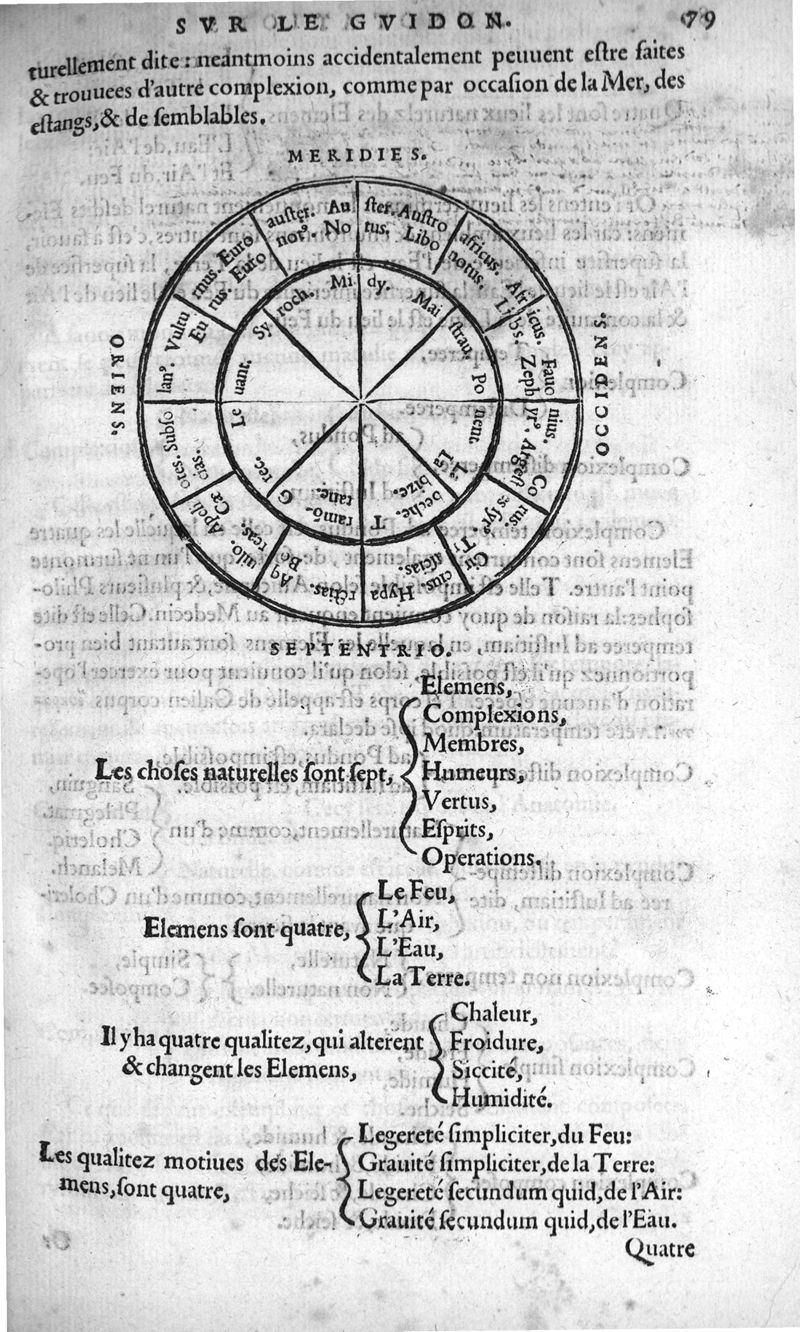 SVR LE GVIDON. 79
turellement dite : neantmoins accidentalement peuuent eſtre faites
& trouuees d'autre complexion, comme par occaſion de la Mer, des
eſtangs, & de ſemblables.
MERIDIES.
auſter. Au ſter. Auſtro
notꝰ. No tus. Libo
africus. Afr icus.
notus. Libs.
mus. Euro
rus. Euro
Vultu
Eu
Mi dy.
Mai ſtrau
Sy roch.
ORIENS.
OCCIDENS.
lanꝰ.
Le uant.
Po nent.
Fauo nius.
Zeph yrꝰ. Argeſt
Subſo
otes.
cias.
Apeli
Cæ
Grec.
La beche.
bize.
Co rus.
Tramõ
tane.
uilo.
reas.
Aq
Bo
rctias. Hypa
Cir cius.
aſcias.
SEPTENTRIO.
Les choſes naturelles ſont ſept,
Elemens,
Complexions,
Membres,
Humeurs,
Vertus,
Eſprits,
Operations.
Elemens ſont quatre,
Le Feu,
L'Air,
L'Eau,
La Terre.
Il y ha quatre qualitez, qui alterent
& changent les Elemens,
Chaleur,
Froidure,
Siccité,
Humidité.
Les qualitez motiues des Ele-
mens, ſont quatre,
Legereté ſimpliciter, du Feu:
Grauité ſimpliciter, de la Terre:
Legereté ſecundum quid, de l'Air:
Grauité ſecundum quid, de l'Eau.
Quatre